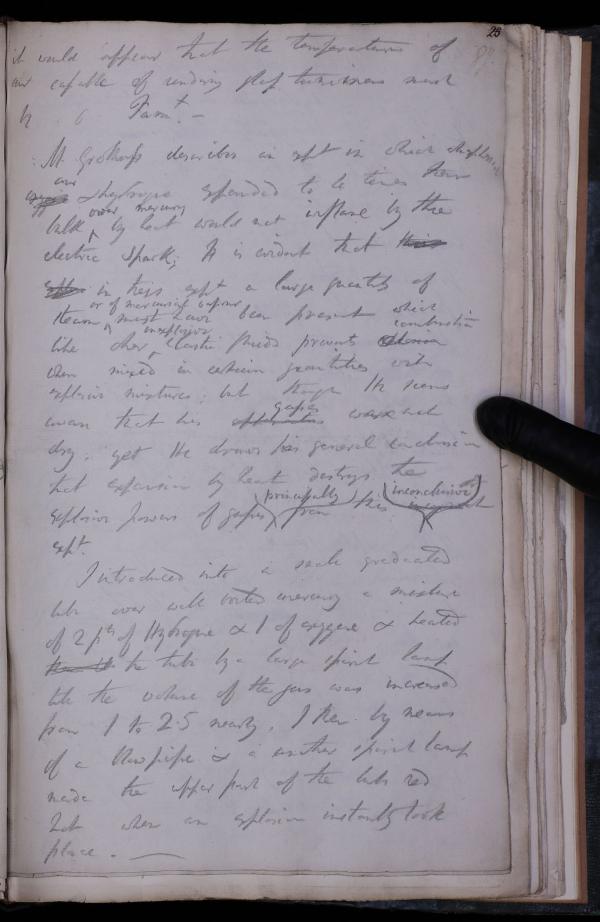 23
it would appear that the temperature of
air capable of rendering glass luminous must
be
M. Grotthuss describes an expt in which
and
& hydrogene expanded to 4 times their
over mercury
bulk by heat would not inflame by the
electric Spark; It is evident that
in this expt a large quantity of
or of mercurial vapour
steam must have been present which
inexplosive combustion
like other elastic fluids prevents
when mixed in certain quantities with
explosive mixtures; but though He seems
aware that his gases were not
dry; yet He draws his general conclusion
that expansion by heat destroys the
principally inconclusive
explosive powers of gases from this
expt.
I introduced into a small graduated
tube over well boiled mercury a mixture
of 2 pts of Hydrogene & 1 of oxygene & heated
the tube by a large spirit lamp
till the volume of the gas was increased
from 1 to 2.5 nearly. I then by means
of a blowpipe & a another spirit lamp
made the upper part of the tube red
hot when an explosion instantly took
place. —